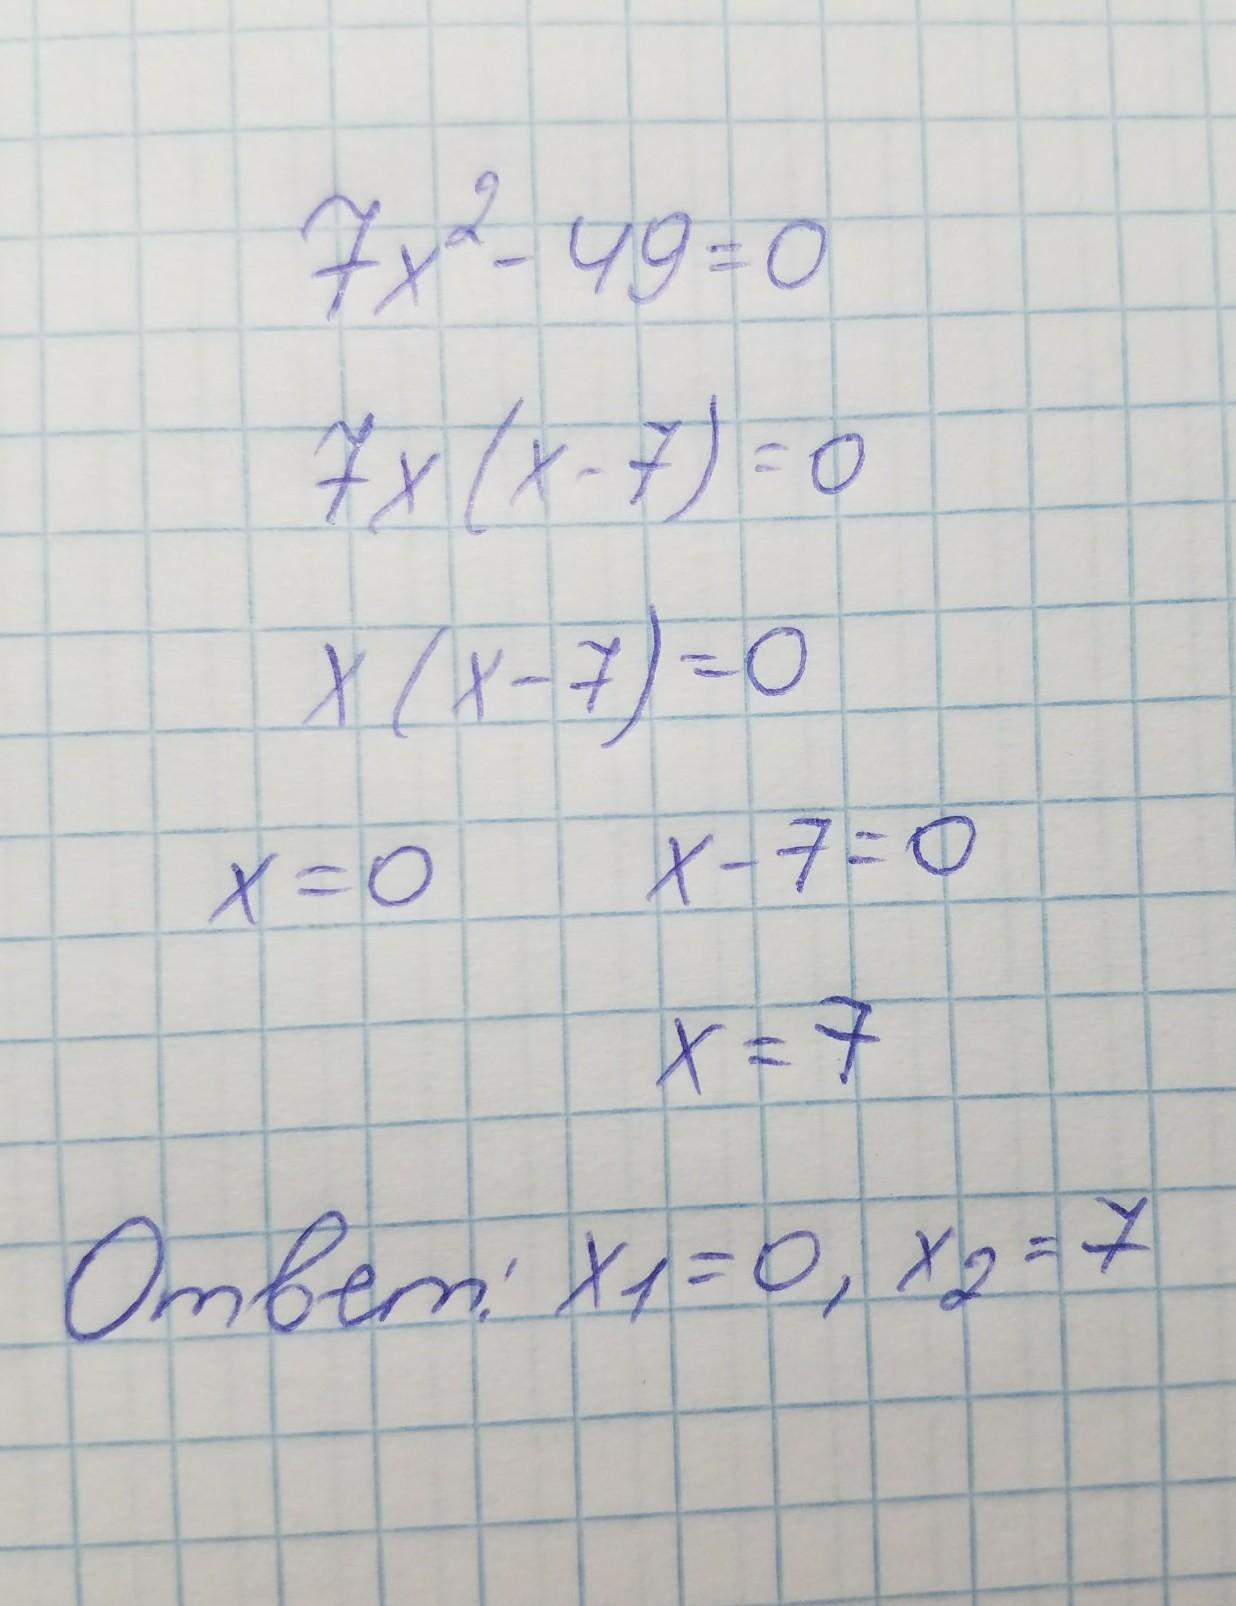 7x² - 49 = 0
7x(x - 7) = 0
x(x - 7) = 0
x = 0 x - 7 = 0
x = 7
Ответ: x₁ = 0, x₂ = 7